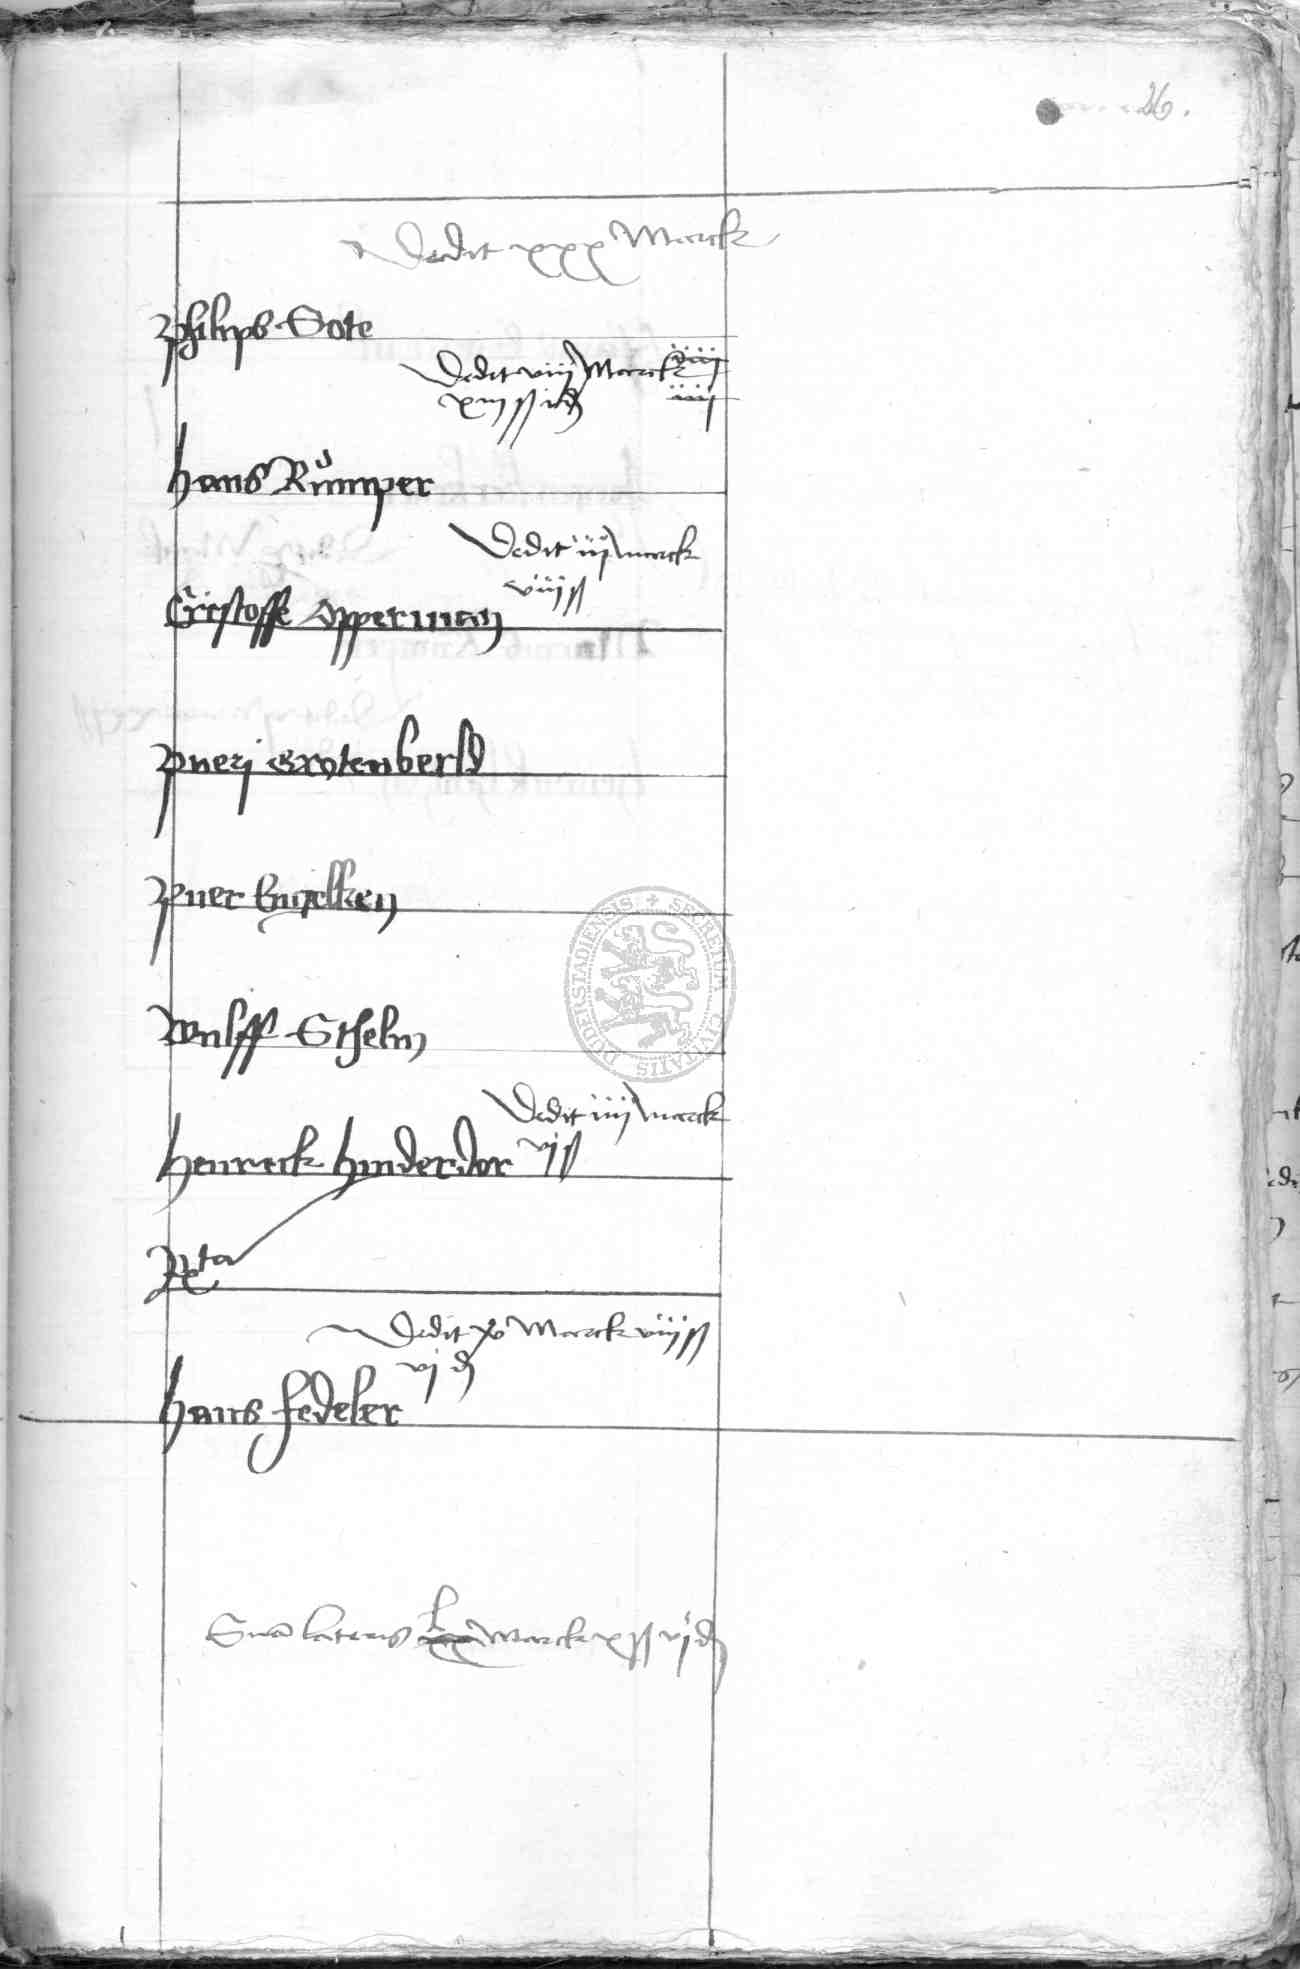 26.
Dedit xxx Marck
Philips Sote
Dedit viiij Marck
xiij ß iij d
iiij
Hans Rumper
Dedit iij marck
viiij ß
Cristoffe Opperman
Pueri Grotenberls
Puer
Wulff Sthelin
Dedit iiij marck
vj ß
Henreck Hinderdor
Rta
Dedit xv Marck viiij ß
vj d
Hans Fedeler
Sma lateris l Marck x ß vj d
SECRETUM CIVITATIS DUDERSTADIENSIS